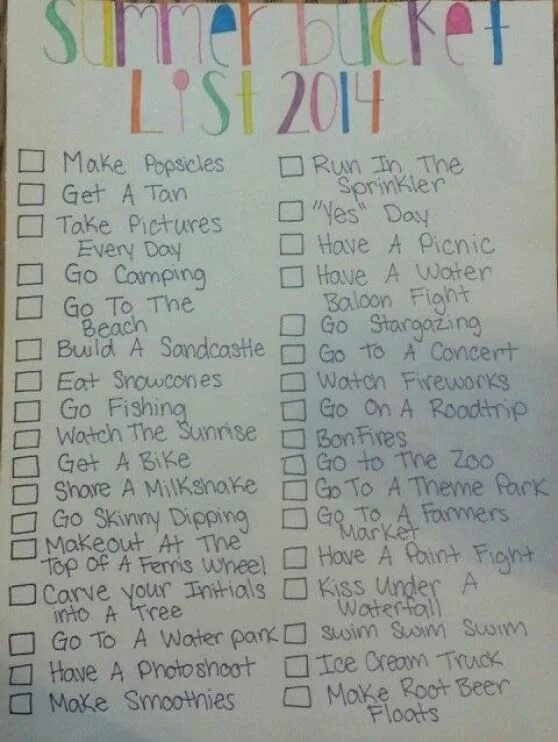 Summer Bucket
List 2014
Make Popsicles
Get A Tan
Take Pictures
Every Day
Go Camping
Go To The
Beach
Build A Sandcastle
Eat Snowcones
Go Fishing
Watch The Sunrise
Get A Bike
Share A Milkshake
Go Skinny Dipping
Makeout At The
Top Of A Ferris Wheel
Carve your Initials
into A Tree
Go To A Water park
Have A Photoshoot
Make Smoothies
Run In The
Sprinkler
"Yes" Day
Have A Picnic
Have A Water
Baloon Fight
Go Stargazing
Go To A Concert
Watch Fireworks
Go On A Roadtrip
BonFires
Go to The Zoo
Go To A Theme Park
Go To A Farmers
Market
Have A Paint Fight
Kiss Under A
Waterfall
Swim Swim Swim
Ice Cream Truck
Make Root Beer
Floats